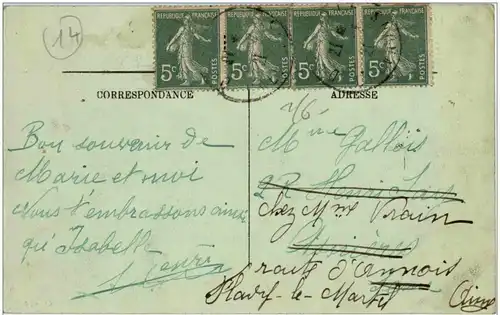 14
REPUBLIQUE FRANÇAISE
5c
POSTES
REPUBLIQUE FRANÇAISE
5c
POSTES
REPUBLIQUE FRANÇAISE
5c
POSTES
REPUBLIQUE FRANÇAISE
5c
POSTES
CORRESPONDANCE
ADRESSE
Bon souvenir de
Marie et moi
Nous t'embrassons ainsi
qu'Isabelle
Henri
Mme Gallois
R. Henri
chez Mme Vrain
Asnières
route d'Aunois
le Martel